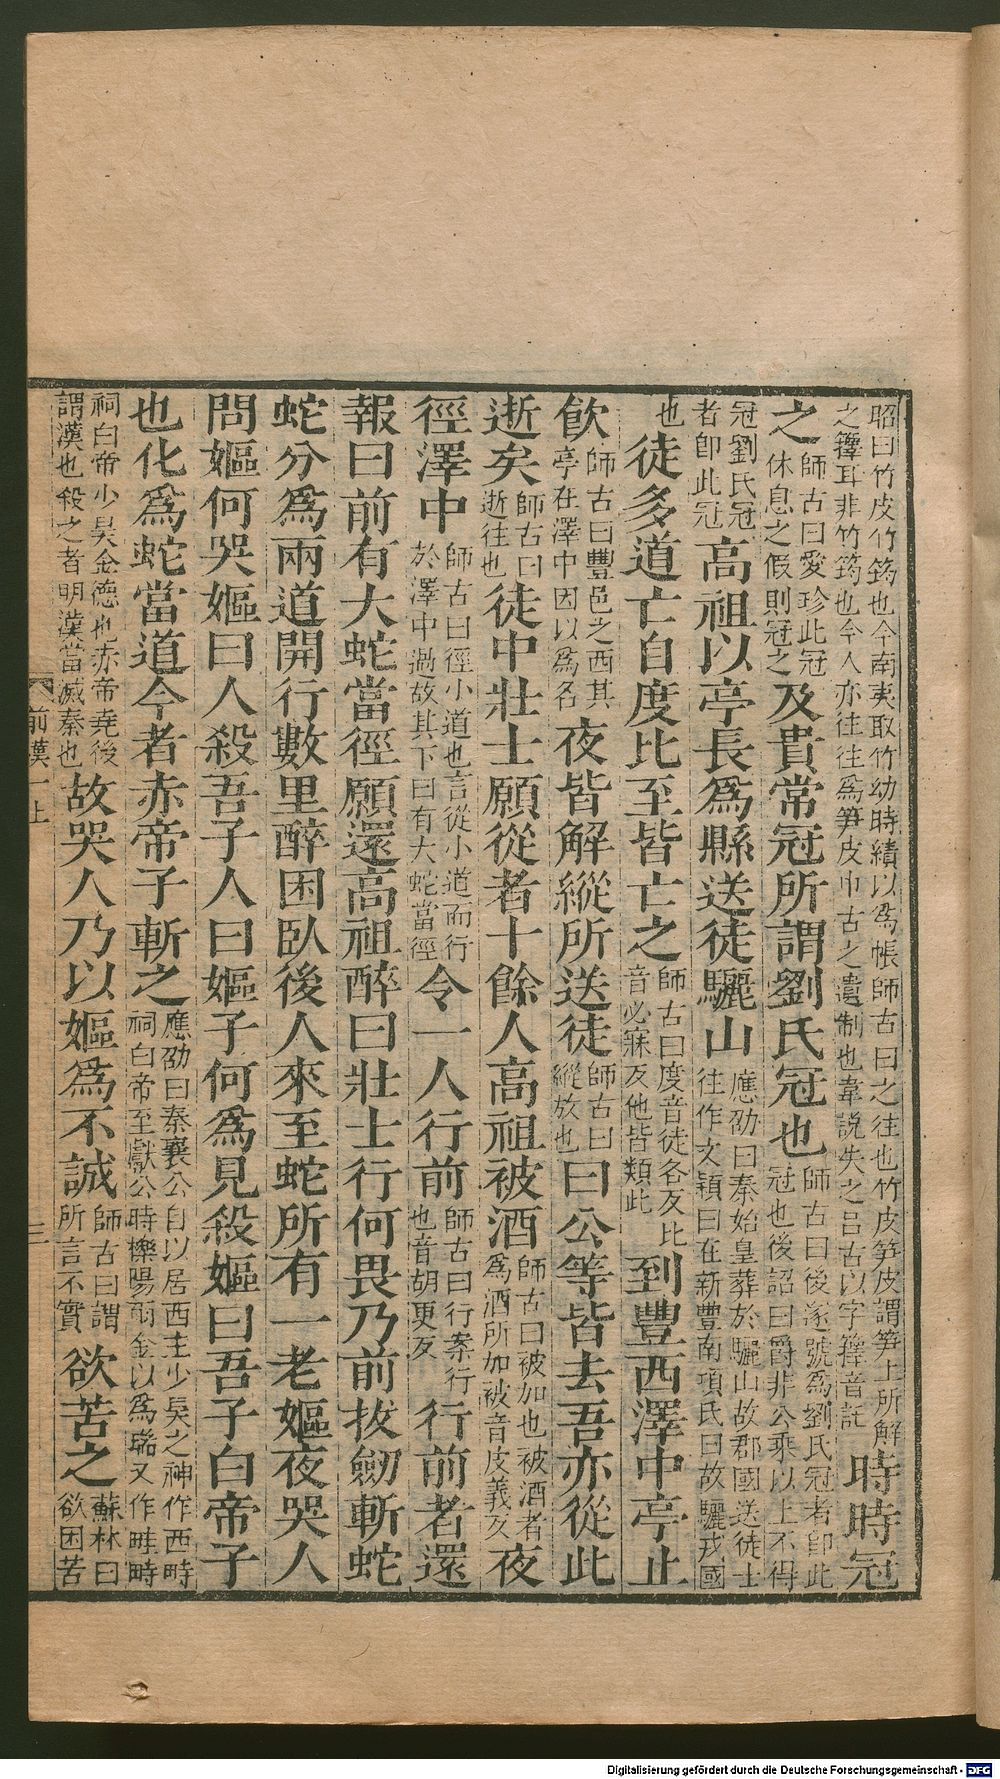 昭曰竹皮竹筠也今南夷取竹幼時績以爲帳師古曰之往也竹皮笋皮謂笋上所解
之籜耳非竹筠也今人亦往往爲笋皮巾古之遺制也韋說失之呂古以字籜音託
時時冠
之
師古曰愛珍此冠
休息之假則冠之
及貴常冠所謂劉氏冠也
師古曰後遂號爲劉氏冠者卽此
冠也後詔曰爵非公乘以上不得
冠劉氏冠
者卽此冠
高祖以亭長爲縣送徒驪山
應劭曰秦始皇葬於驪山故郡國送徒士
往作文穎曰在新豐南項氏曰故驪戎國
也
徒多道亡自度比至皆亡之
師古曰度音徒各反比
音必寐反他皆類此
到豐西澤中亭止
飮
師古曰豐邑之西其
亭在澤中因以爲名
夜皆解縱所送徒
師古曰
縱放也
曰公等皆去吾亦從此
逝矣
師古曰
逝往也
徒中壯士願從者十餘人高祖被酒
師古曰被加也被酒者
爲酒所加被音皮義反
夜
徑澤中
師古曰徑小道也言從小道而行
於澤中過故其下曰有大蛇當徑
令一人行前
師古曰行案行
也音胡更反
行前者還
報曰前有大蛇當徑願還高祖醉曰壯士行何畏乃前拔劒斬蛇
蛇分爲兩道開行數里醉困臥後人來至蛇所有一老嫗夜哭人
問嫗何哭嫗曰人殺吾子人曰嫗子何爲見殺嫗曰吾子白帝子
也化爲蛇當道今者赤帝子斬之
應劭曰秦襄公自以居西主少昊之神作西畤
祠白帝至獻公時櫟陽雨金以爲瑞又作畦畤
祠白帝少昊金德也赤帝堯後
謂漢也殺之者明漢當滅秦也
故哭人乃以嫗爲不誠
師古曰謂
所言不實
欲苦之
蘇林曰
欲困苦
前漢一上
三
Digitalisierung gefördert durch die Deutsche Forschungsgemeinschaft - DFG